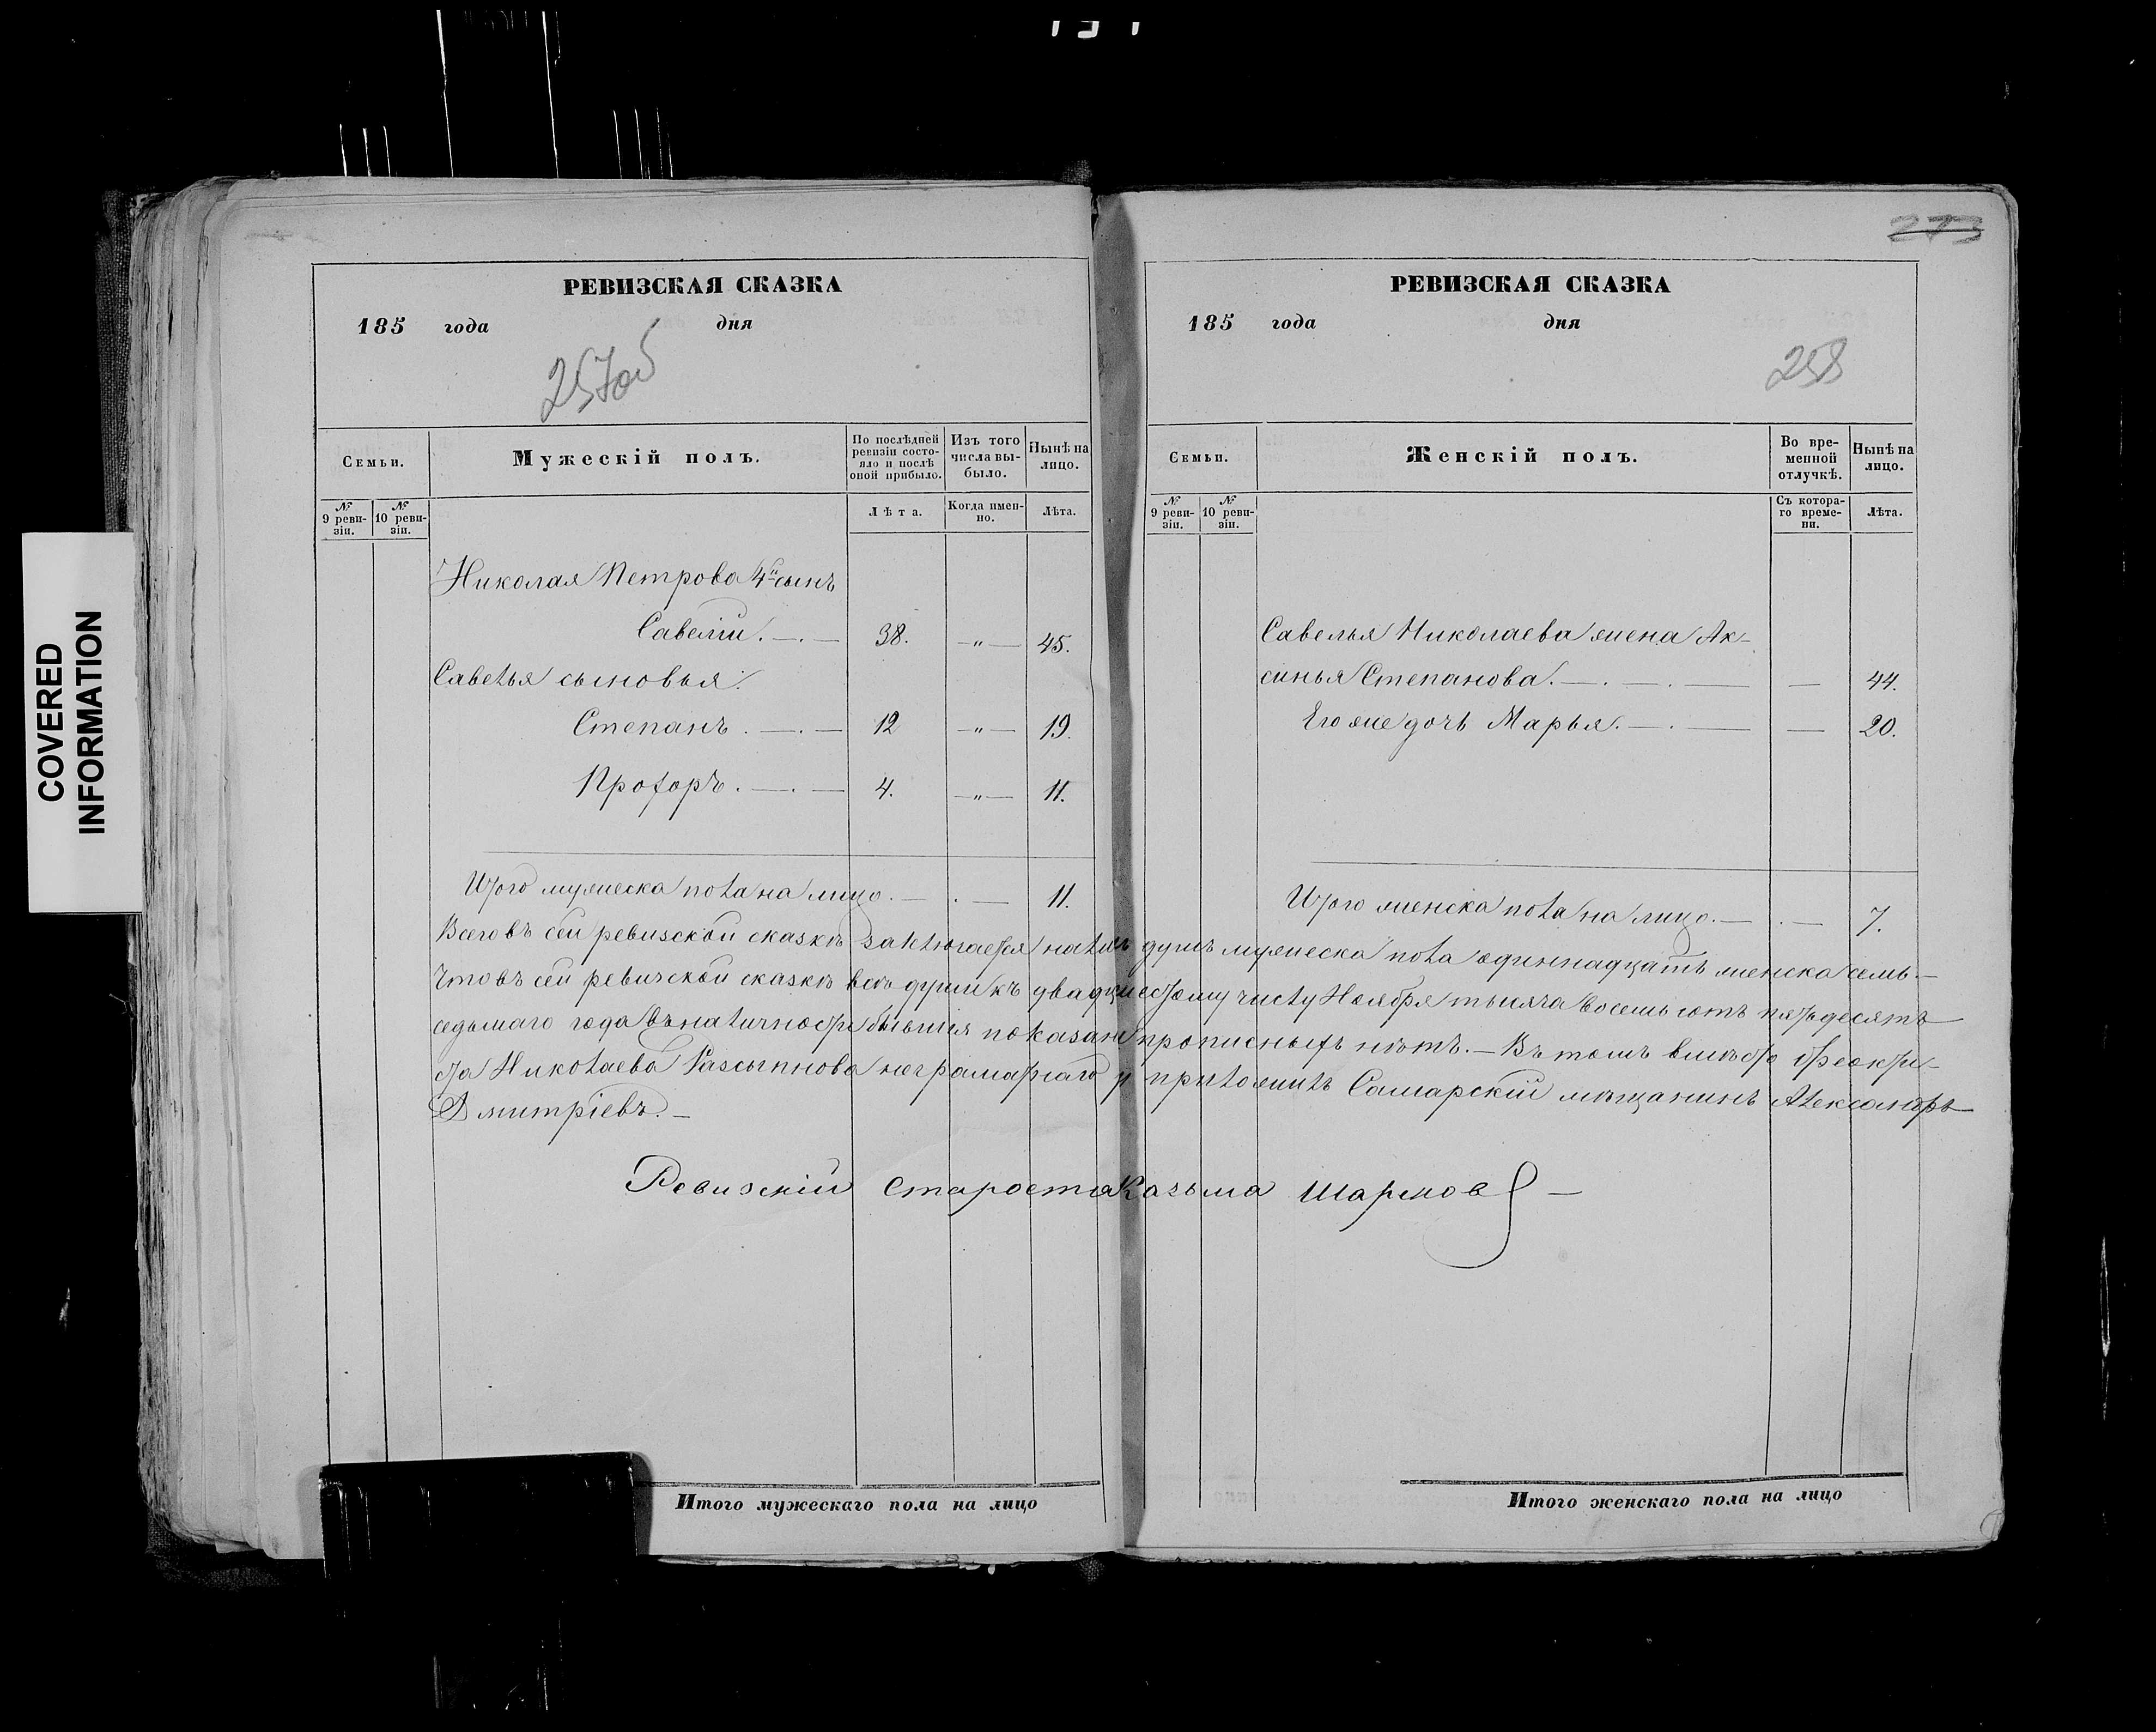 COVERED
INFORMATION
273
РЕВИЗСКАЯ СКАЗКА
185 года дня
257об
Семьи.
Мужескій полъ.
По послѣдней ревизіи состояло и послѣ оной прибыло.
Изъ того числа выбыло.
Нынѣ на лицо.
№ 9 ревизіи.
№ 10 ревизіи.
Лѣта.
Когда именно.
Лѣта.
Николая Петрова 4й сынъ
Савелій. 38. —"— 45.
Савелья сыновья:
Степанъ. 12 —"— 19.
Прохоръ. 4. —"— 11.
Итого мужеска пола на лицо. 11.
РЕВИЗСКАЯ СКАЗКА
185 года дня
258
Семьи.
Женскій полъ.
Во временной отлучкѣ.
Нынѣ на лицо.
№ 9 ревизіи.
№ 10 ревизіи.
Съ котораго времени.
Лѣта.
Савелья Николаева жена Ак-
синья Степанова. — 44.
Его же дочь Марья. — 20.
Итого женска пола на лицо. 7.
Всего въ сей ревизской сказкѣ заключается налицъ душъ мужеска пола одиннадцать женска семь —
Что въ сей ревизской сказкѣ всѣ души къ двадцшестому числу Ноября тысяча восемь сотъ пятьдесятъ
седьмаго года въ наличности бывшія показаны прописныхъ нѣтъ. — Въ томъ вмѣсто Феокти-
ста Николаева Разсыпнова неграматнаго приложилъ Самарскій мѣщанинъ Александръ
Дмитріевъ. —
Ревизскій староста Казьма Шарков
Итого мужескаго пола на лицо
Итого женскаго пола на лицо